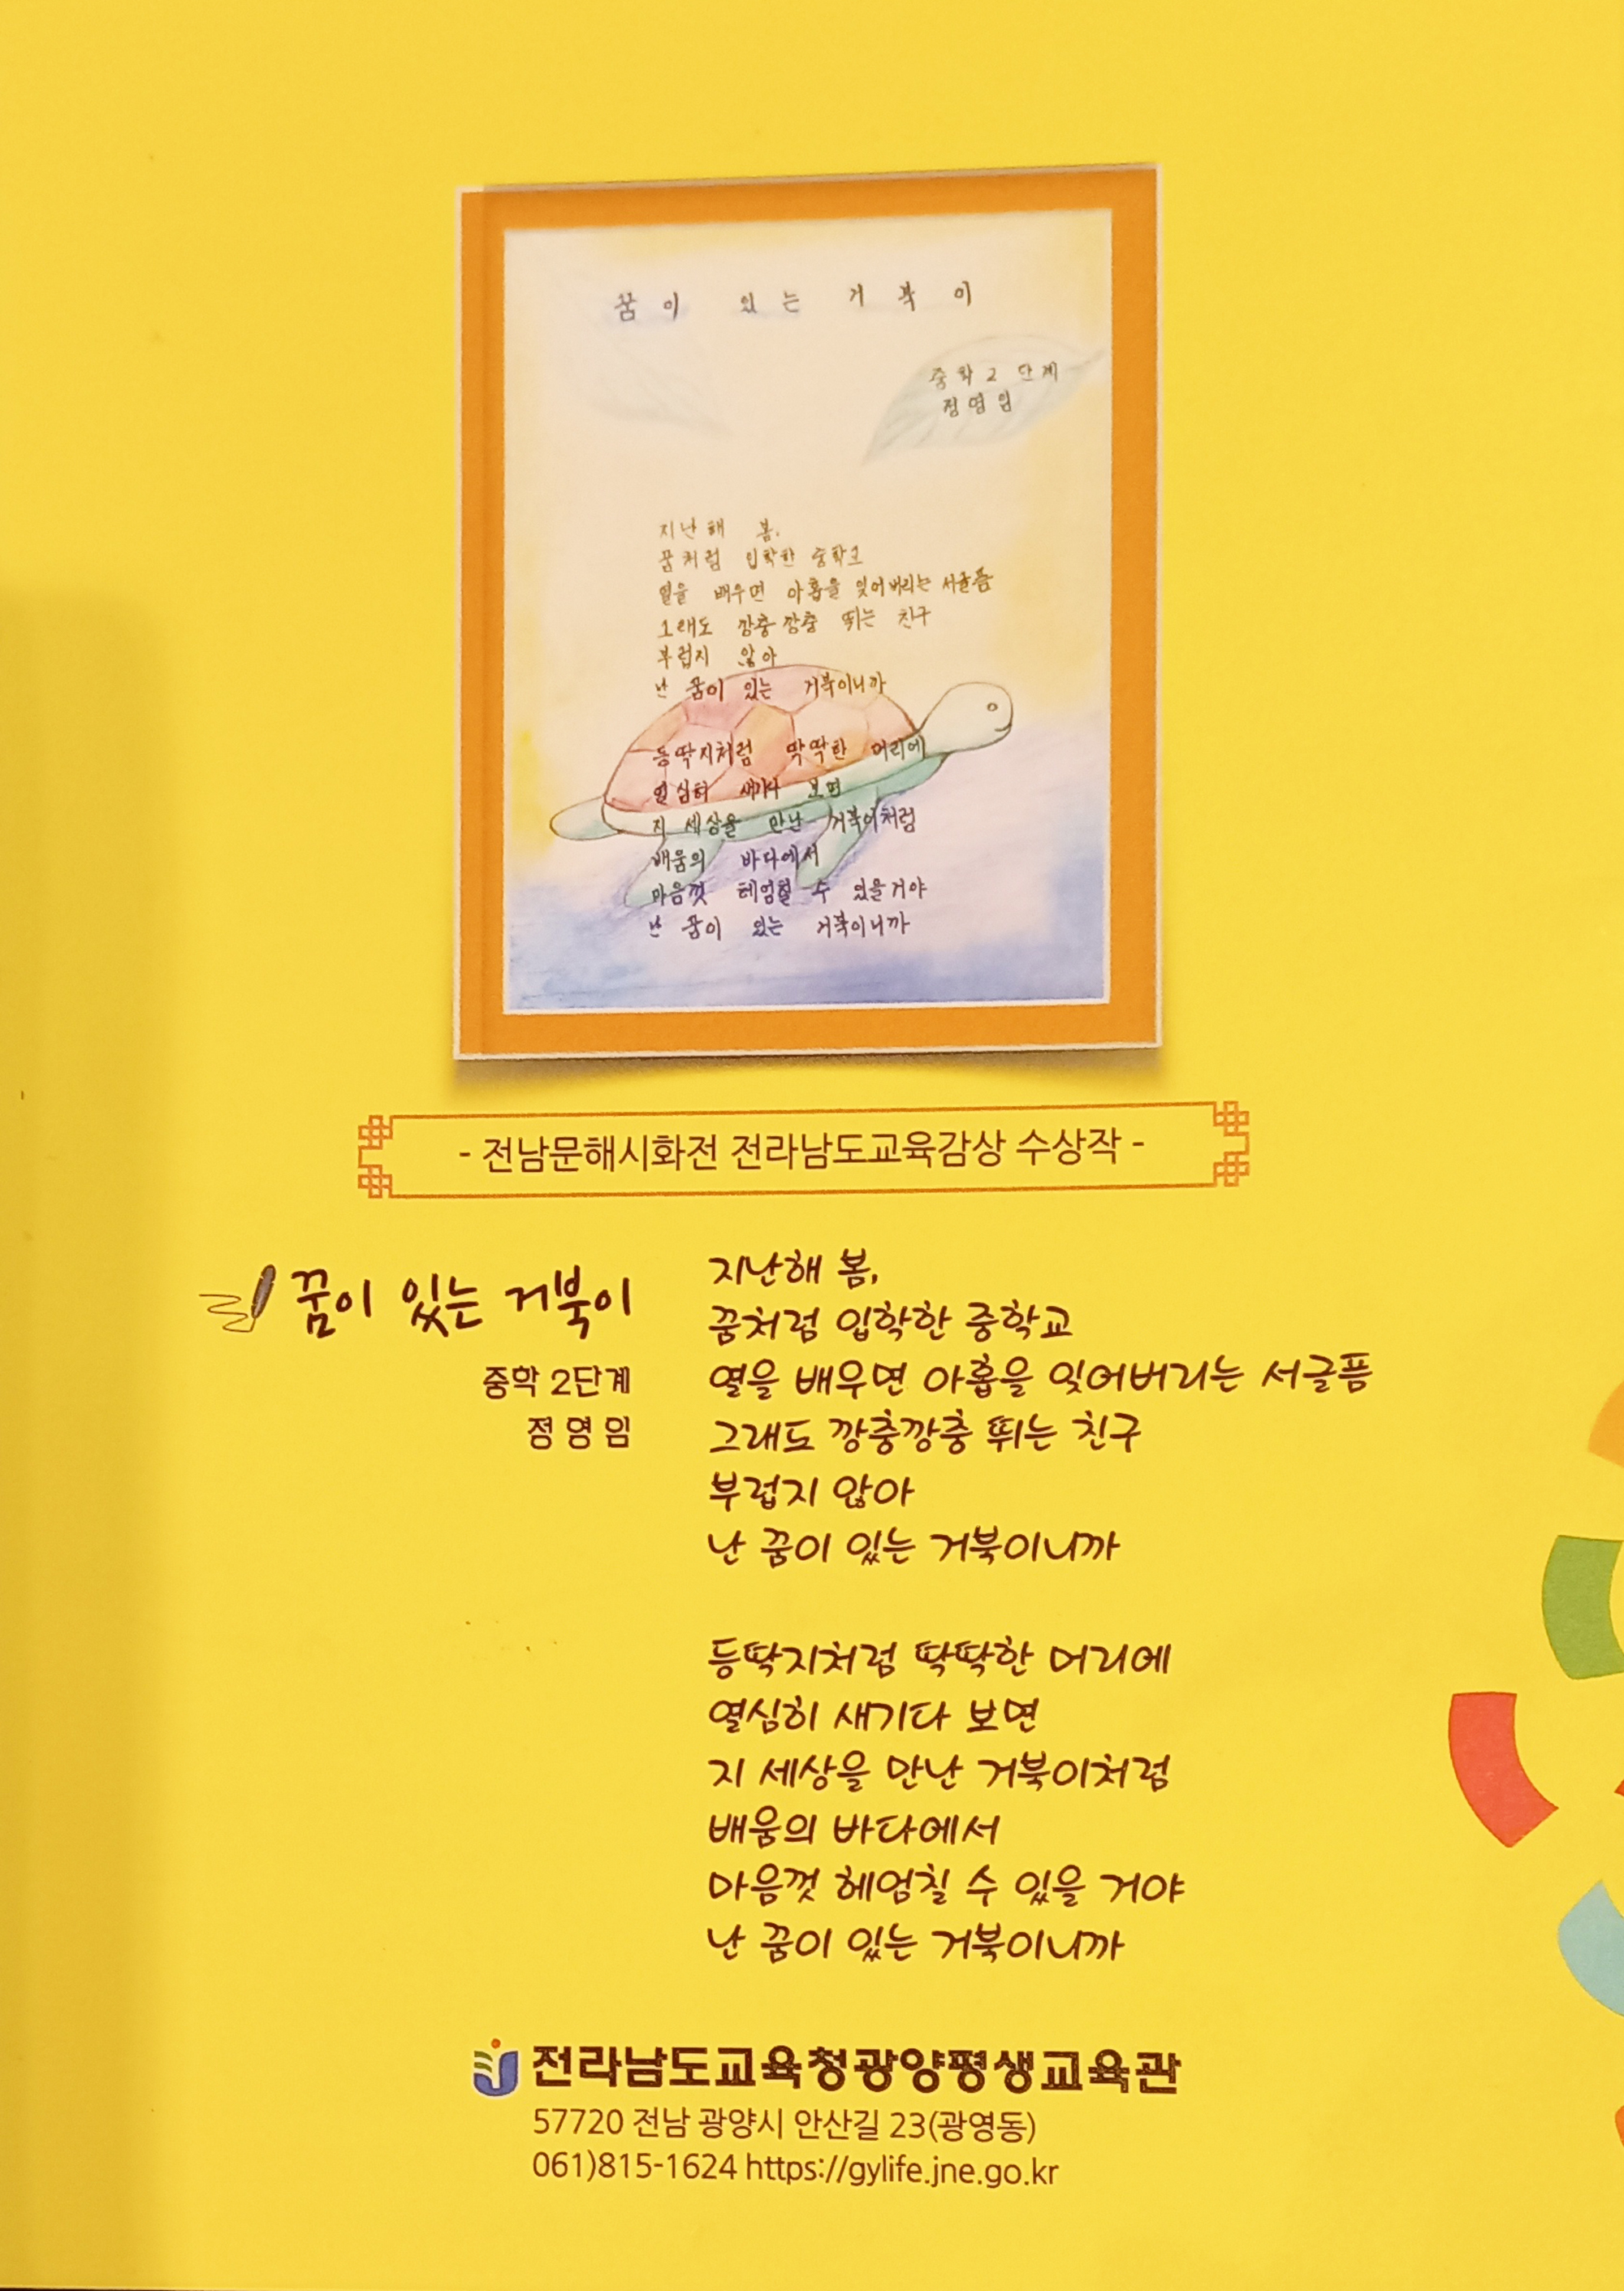 꿈이 있는 거북이
중학2 단계
정영임
지난해 봄,
꿈처럼 입학한 중학교
열을 배우면 아홉을 잊어버리는 서글픔
그래도 깡충깡충 뛰는 친구
부럽지 않아
난 꿈이 있는 거북이니까
등딱지처럼 딱딱한 머리에
열심히 새기다 보면
지 세상을 만난 거북이처럼
배움의 바다에서
마음껏 헤엄칠 수 있을거야
난 꿈이 있는 거북이니까
- 전남문해시화전 전라남도교육감상 수상작 -
꿈이 있는 거북이
중학 2단계
정 영 임
지난해 봄,
꿈처럼 입학한 중학교
열을 배우면 아홉을 잊어버리는 서글픔
그래도 깡충깡충 뛰는 친구
부럽지 않아
난 꿈이 있는 거북이니까
등딱지처럼 딱딱한 머리에
열심히 새기다 보면
지 세상을 만난 거북이처럼
배움의 바다에서
마음껏 헤엄칠 수 있을 거야
난 꿈이 있는 거북이니까
전라남도교육청광양평생교육관
57720 전남 광양시 안산길 23(광영동)
061)815-1624 https://gylife.jne.go.kr